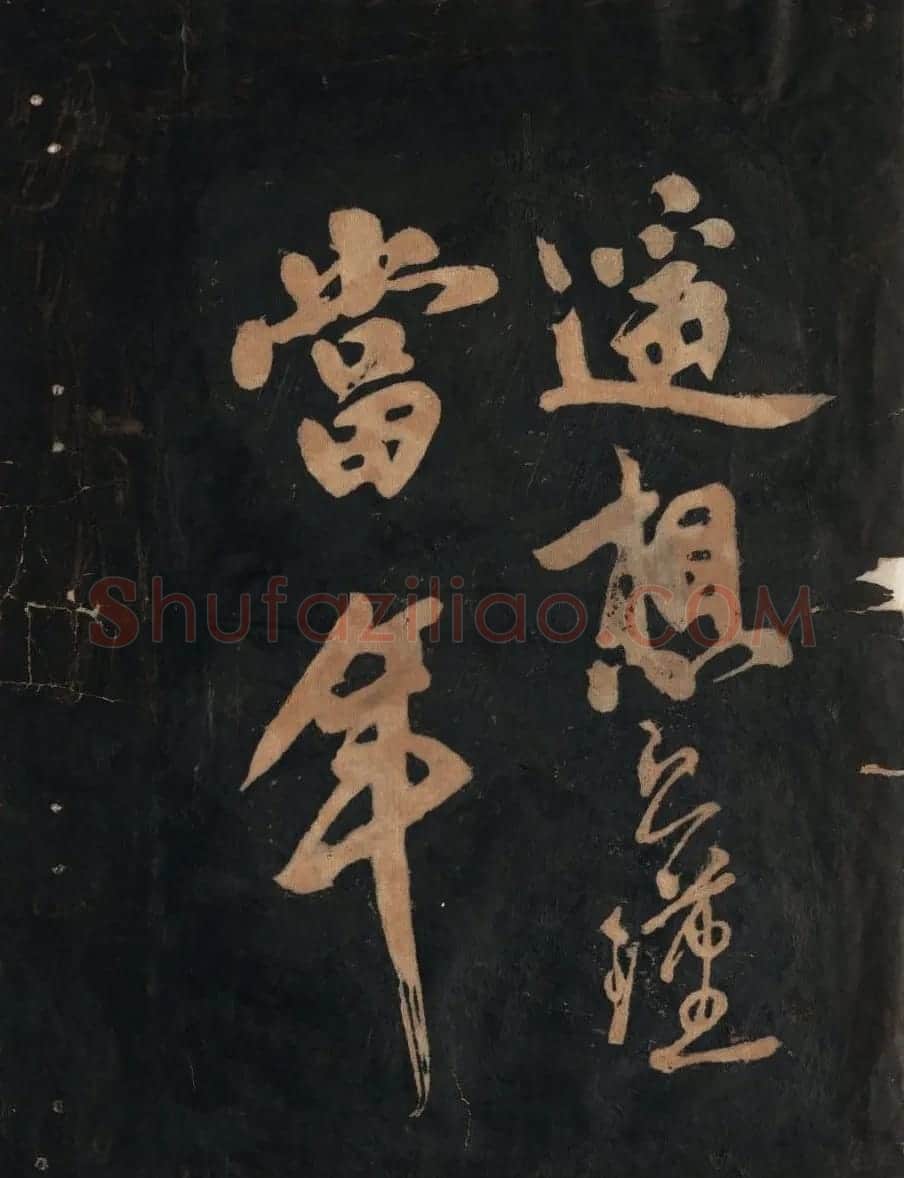 遙想公瑾
當年
Shufaziliao.COM